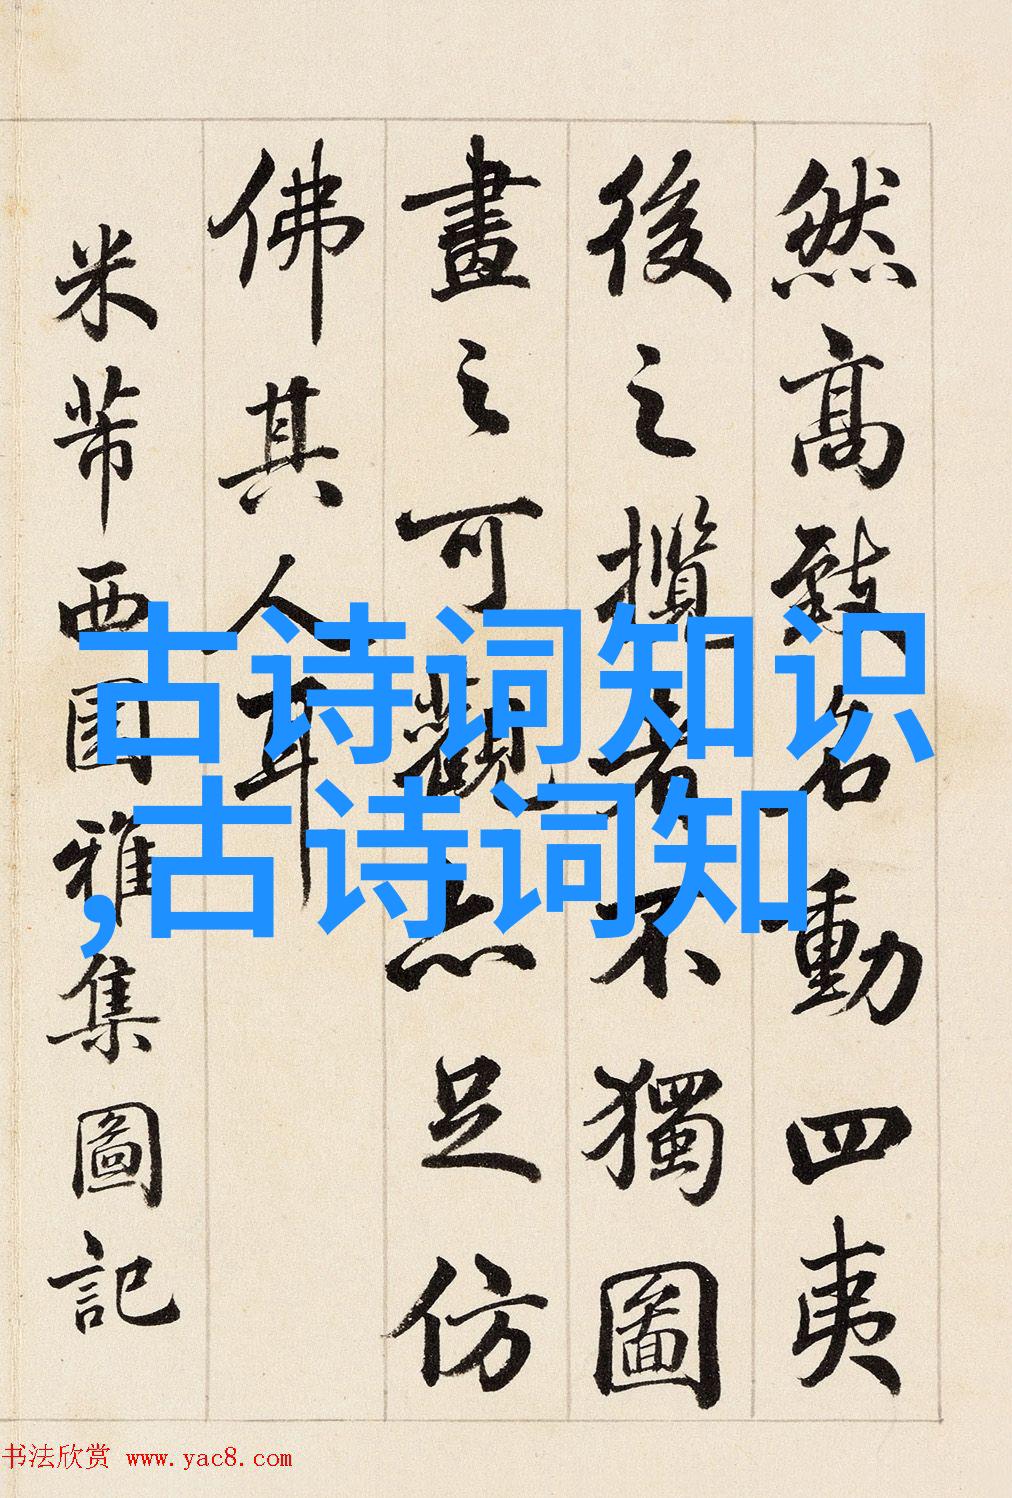 然高致名動四夷
後之攬者不獨圖
畫之可觀亦足仿
佛其人耳
米芾西園雅集圖記
古诗词知识
,古诗词知
书法欣赏 www.yac8.com